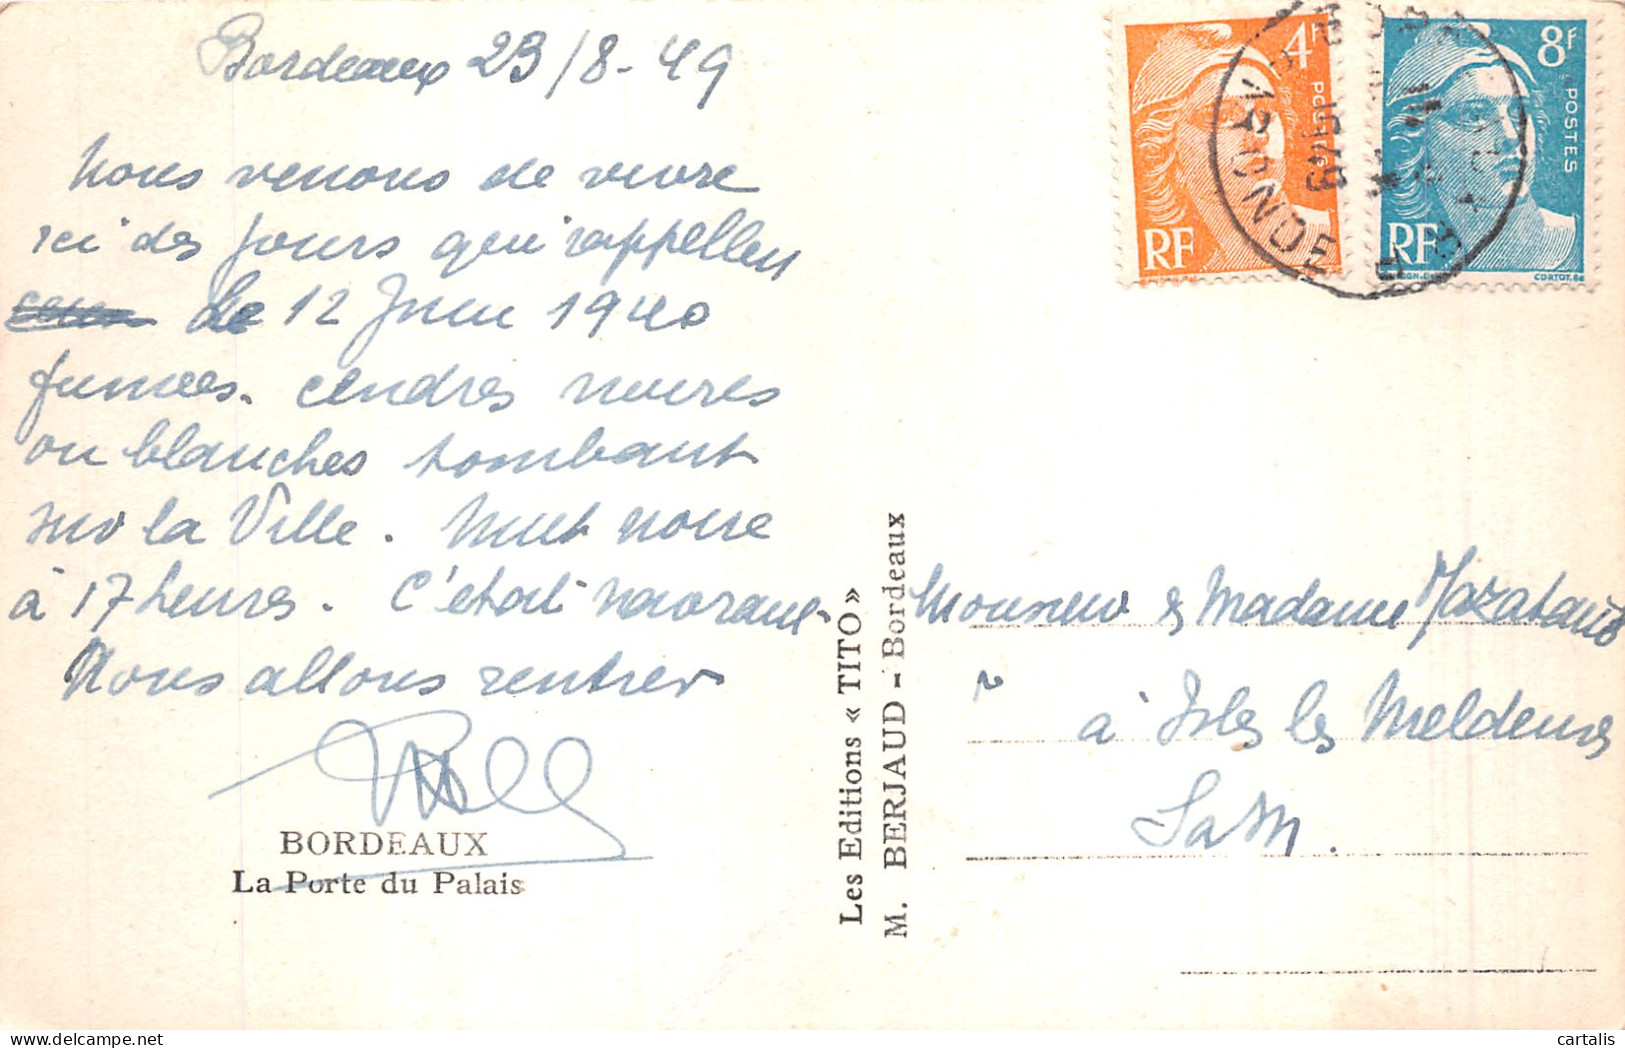 Bordeaux 23/8-49
Nous venons de vivre
ici des jours qui rappellent
le 12 Juin 1940
fumées. cendres noires
ou blanches tombant
sur la Ville. Nuit noire
à 17 heures. C'était navrant
Nous allons rentrer
BORDEAUX
La Porte du Palais
Les Editions « TITO »
M. BERJAUD - Bordeaux
4F
POSTES
RF
8F
POSTES
RF
CORTOT.
GIRONDE
Monsieur & Madame
à Isles les Meldeuses
S&M.
cartalis